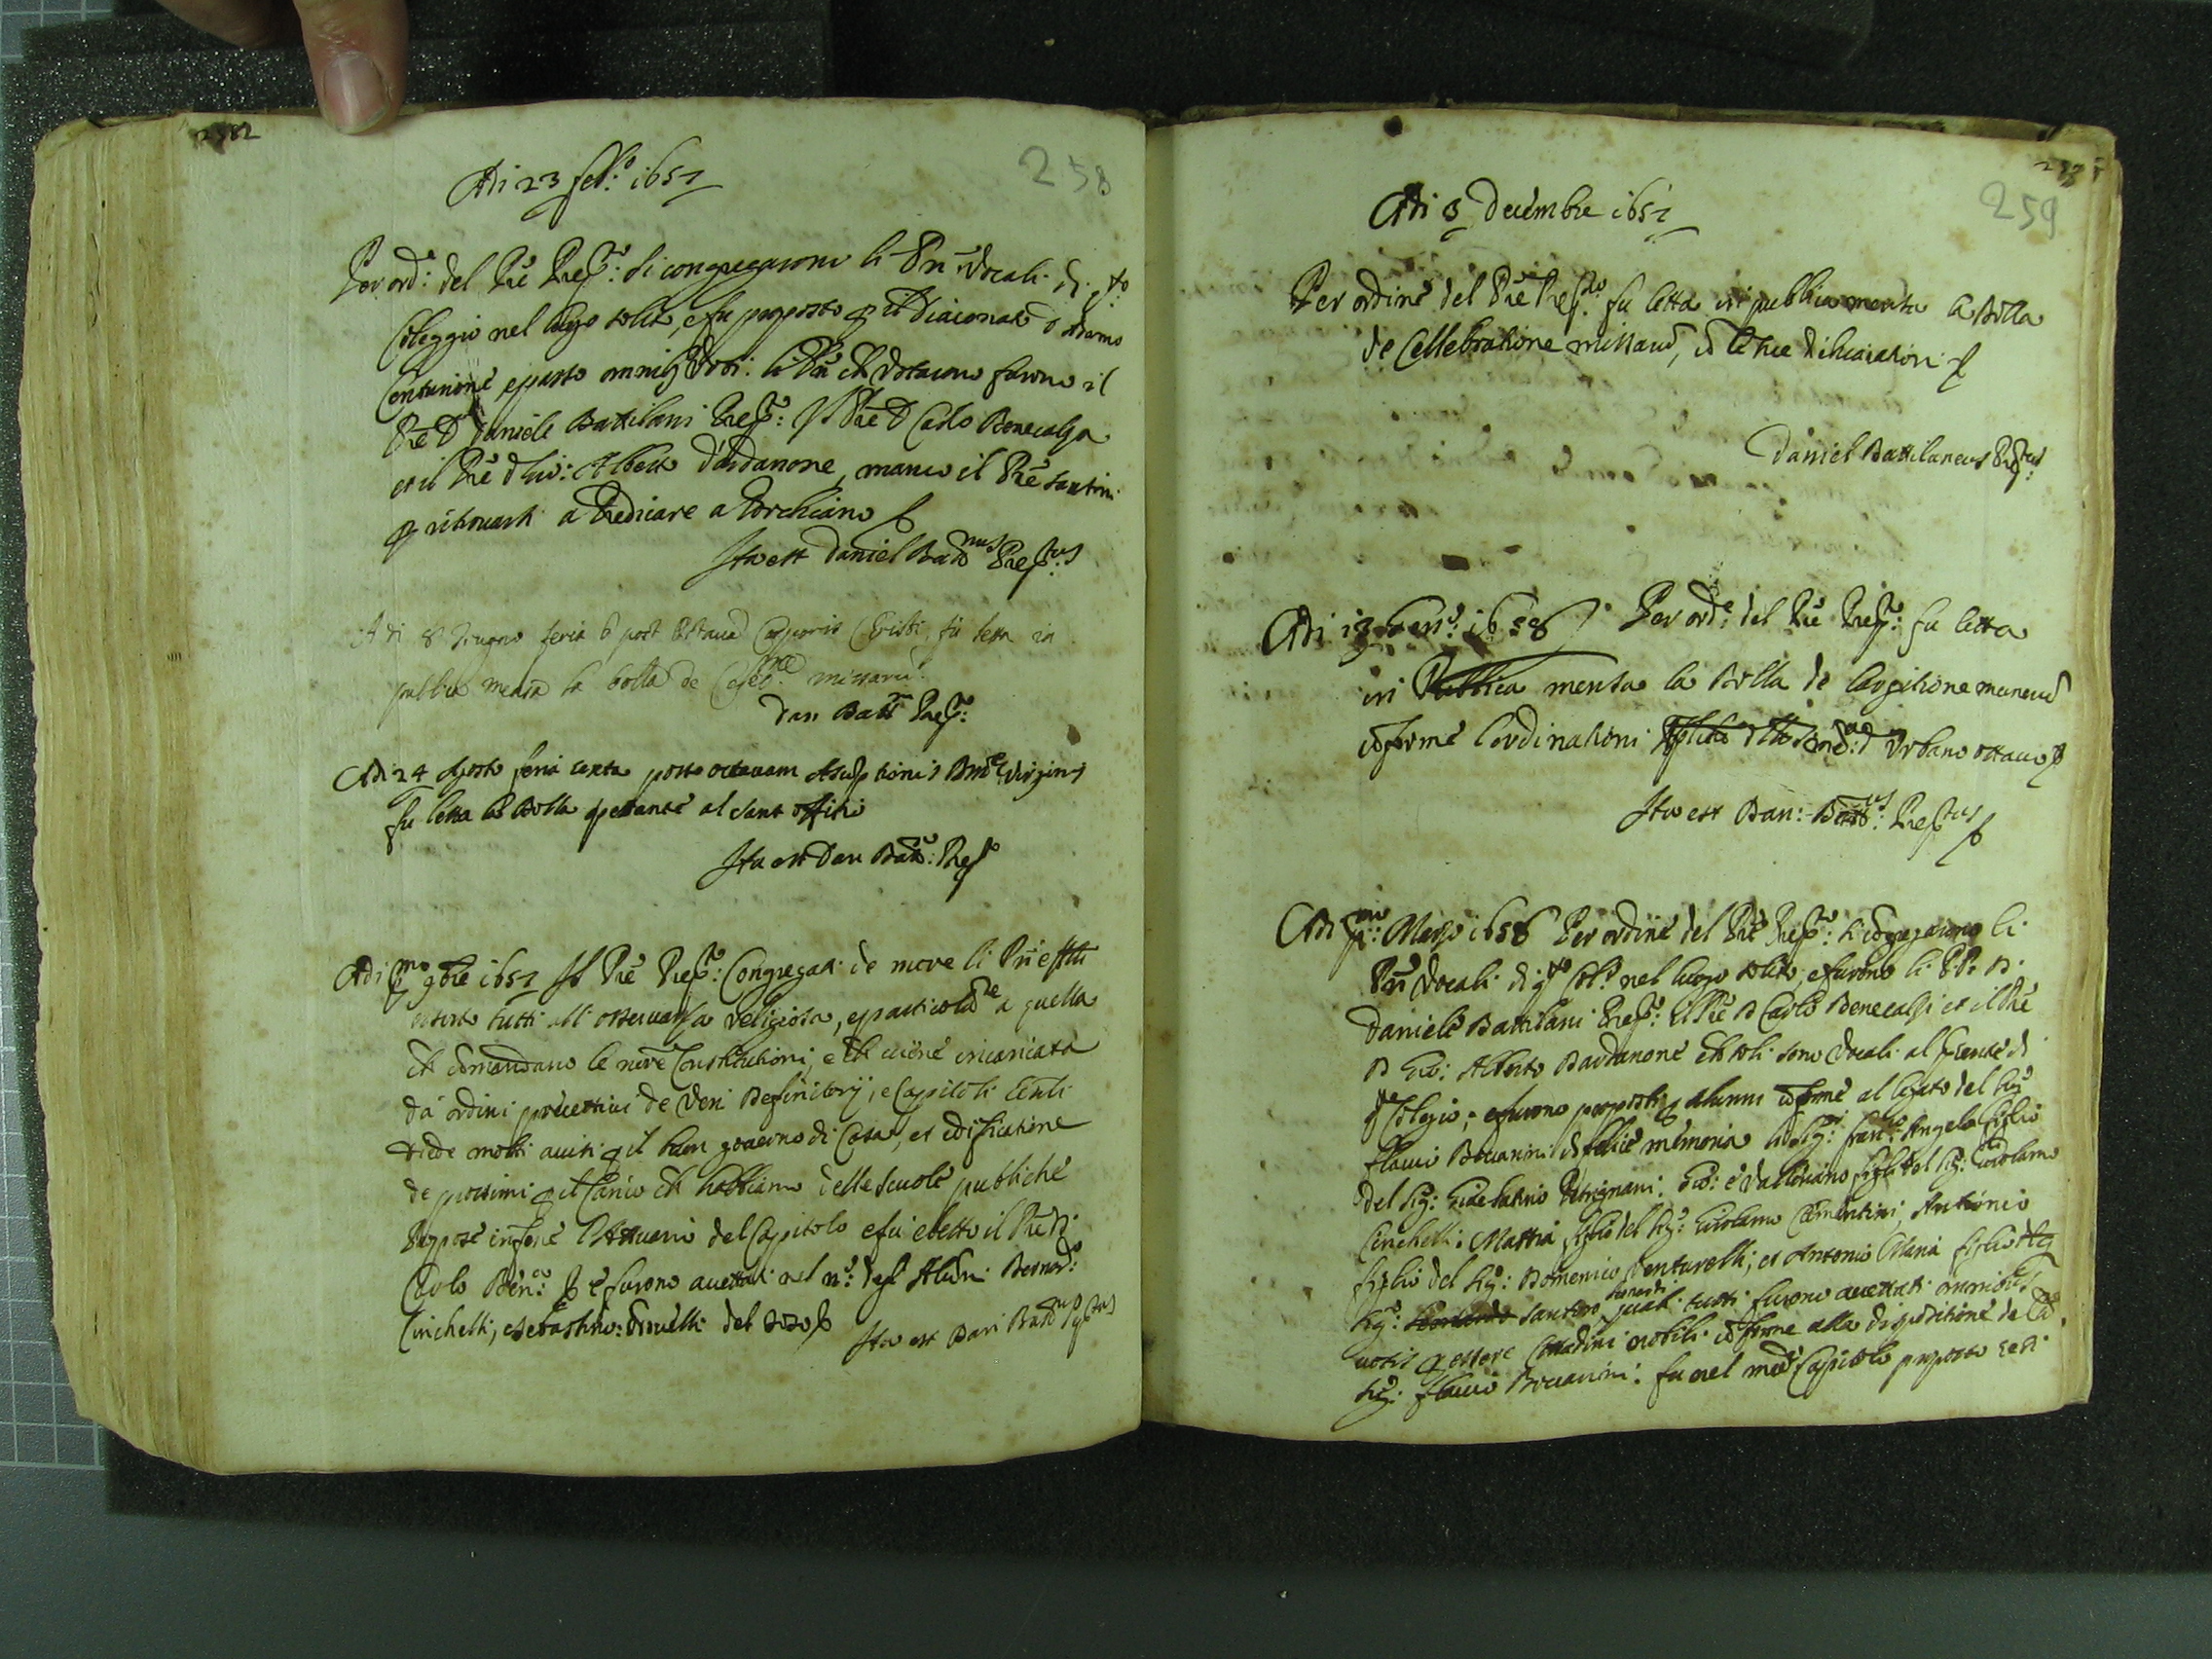 258
Adi 23 feb:o 1657
Per ord:e del Pre Prep:to si congregarono li Pri Vocali di q.to
Coleggio nel luogo solito, e fu proposto p il Diaconato d Adamo
Centurione e passò omnibus votis: li Pri che votarono furono il
Pre D Daniele Battilani Prep:to Il Pre D Carlo Benecalza
et il Pre D Gio: Alberto Dardanone, manco il Pre Santini
p ritrovarsi a Predicare a Porchiano
Ita est Daniel Batt.nus Prep:tus
Adi 8 Giugno feria 6 post Octavã Corporis Christi, fu letta in
publica mensa la bolla de Celeb:ne missarũ.
Dan Batt Prep:to
Adi 24 Agosto feria sexta post octavam Asuptionis Bme Virginis
fu letta la Bolla spettante al sant offitio
Ita est Dan Batt: Prep
Adi p.mo 9bre 1657 Il Pre Prep:to Congregati de more li Pri
esorto tutti all osservanza religiosa, e particolar.te a quella
che comandano le nre Constitutioni, e che viene incaricata
da ordini precettivi de Ven Definitorij, e Capitoli Genli
diede molti avisi p il buon governo di Casa, et edificatione
de prossimi p il Carico che habbiamo delle scuole publiche
Propose infine l'Attuario del Capitolo e fu eletto il Pre D.
Carlo Ben:co e furono accettati nel n:o degl Alũni Bernard:o
Cinchelli, e Sebastino:
Ita est Dan Batt.nus Ptus
259
Adi 8 Decembre 1657
Per ordine del Pre Prep.to fu letta in publica mensa la Bolla
de Cellebratione missarũ, cõ le sue dichiarationi
Daniel Battilanus Prep:tus
Adi 18 Gen:o 1658 Per ord:e del Pre Prep:to fu letta
in Publica mensa la Bolla de largitione munerũ
cõforme l'ordinationi d Urbano ottavo
Ita est Dan: Batt:us Prep.tus
Adi p:mo Marzo 1658 Per ordine del Pre Prep:to si cõgregarono li
Pri Vocali di q.to Col:o nel luogo solito, e furono li PP. D.
Daniele Battilani Prep:to Il Pre D Carlo Benecalzi et il Pre
D Gio: Alberto Dardanone che soli sono Vocali al presente di
q.to Colegio; e furono proposti p alunni cõforme al legato del Sig
Flavio Bocarini di felice memoria li Sig:ri Fran:co Angelo figlio
del Sig: Gieselatrio Petrignani. Gio: e Valeriano figli del Sig: Girolamo
Cinchelli: Mattia figlio del Sig: Girolamo Clementini, Antonio
figlio del Sig: Domenico Venturelli; et Antonio Maria figlio
Sig: Santoro quali tutti furono accettati omnibus
votis p essere Cittadini nobili cõforme alla dispositione del d
Sig. Flavio Bocarini: fu nel med Capitolo proposto se si